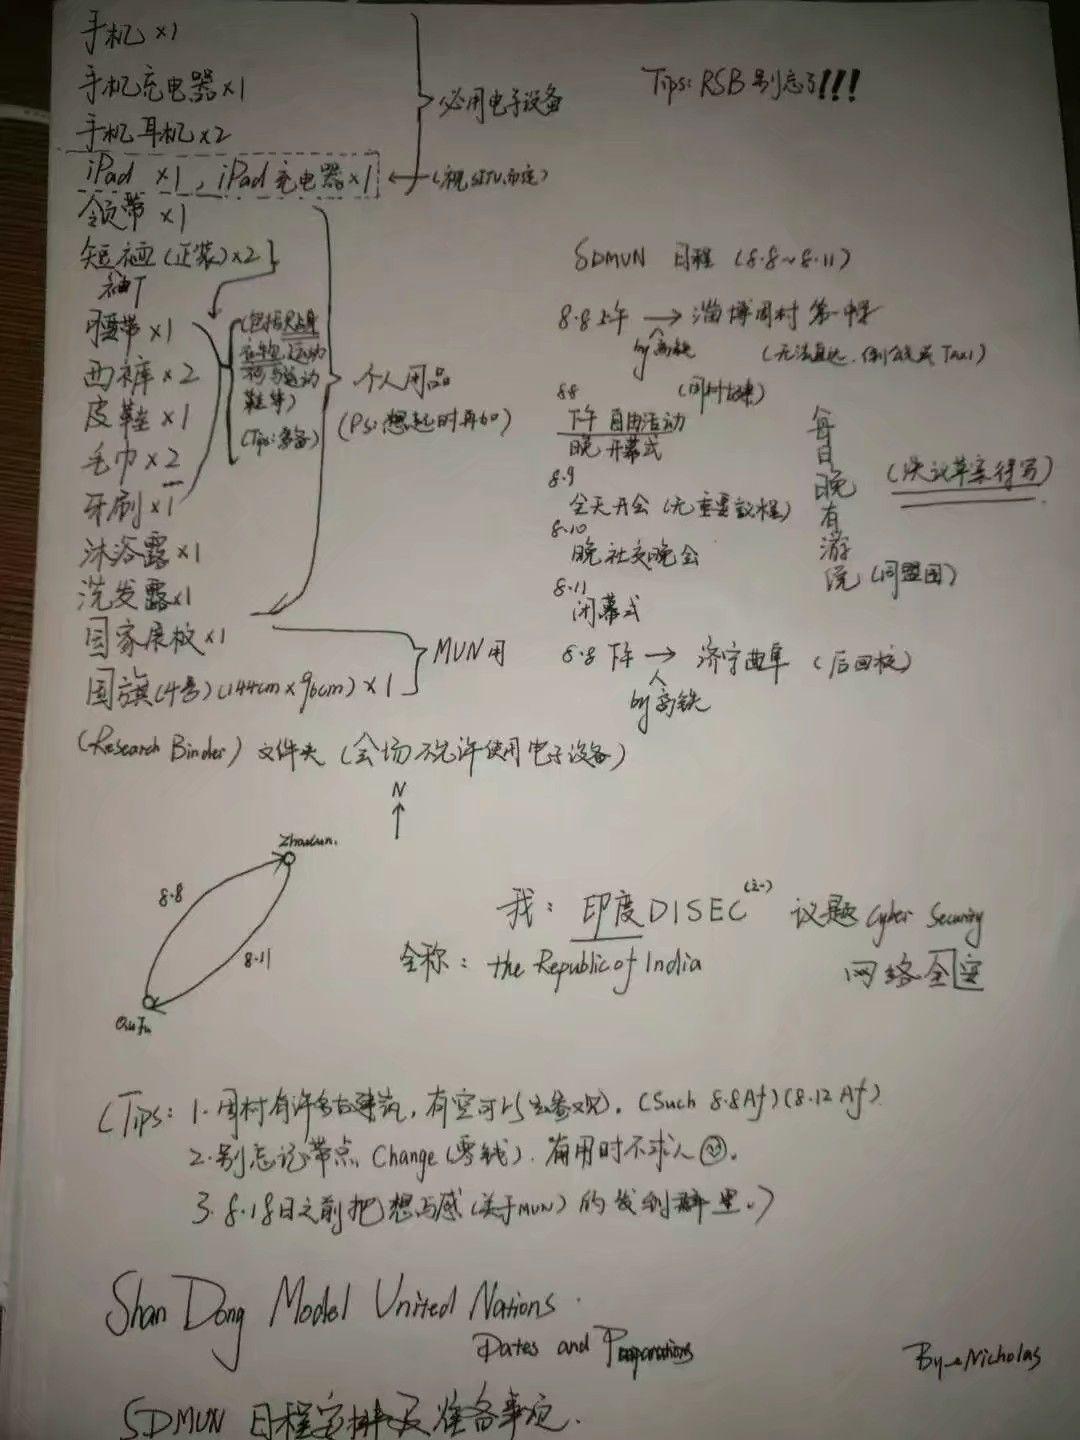 手机 ×1
手机充电器×1
手机耳机×2
iPad ×1, iPad充电器×1
必用电子设备
Tips: RSB 别忘了!!!
领带 ×1
短袖(正装)×2
腰带×1
西裤×2
皮鞋×1
毛巾×2
牙刷×1
沐浴露×1
洗发露×1
鞋等)
个人用品
(Ps: 想起时再加)
国家展板×1
国旗(4号)(144cm×96cm)×1
MUN用
(Research Binder) 文件夹 (会场不允许使用电子设备)
SDMUN 日程 (8.8~8.11)
8.8上午 → 淄博周村
by高铁
(无法直达, Taxi)
8.8
下午 自由活动
晚 开幕式
8.9
全天开会 (无重要议程)
8.10
晚 社交晚会
8.11
闭幕式
每日晚有游说 (同盟国)
(决议草案待写)
8.8 下午 → 济宁曲阜 (后回校)
by高铁
N
Zhoucun.
8.8
8.11
QuFu
我: 印度DISEC 议题 Cyber Security
全称: the Republic of India
网络安全
(Tips: 1. 周村有许多古建筑, 有空可以去参观. (Such 8.8Af)(8.12 Af)
2. 别忘记带点 Change (零钱). 有用时不求人.
3. 8.18日之前把想与感(关于MUN)的发到群里.)
Shan Dong Model United Nations.
Dates and Preparations
By Nicholas
SDMUN 日程安排及准备事宜.